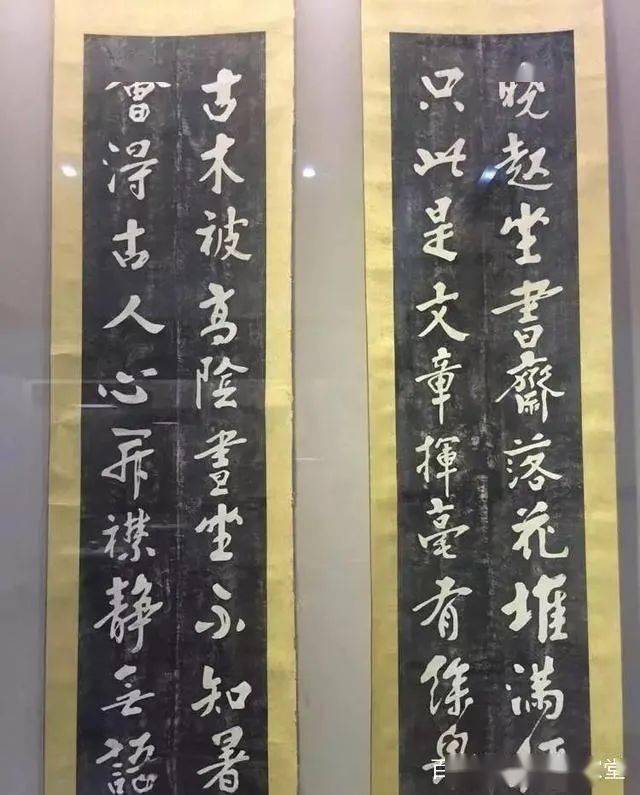 晚起坐書齋落花堆滿
只此是文章揮毫有餘
古木被高陰晝坐不知暑
會得古人心開襟靜無語
堂